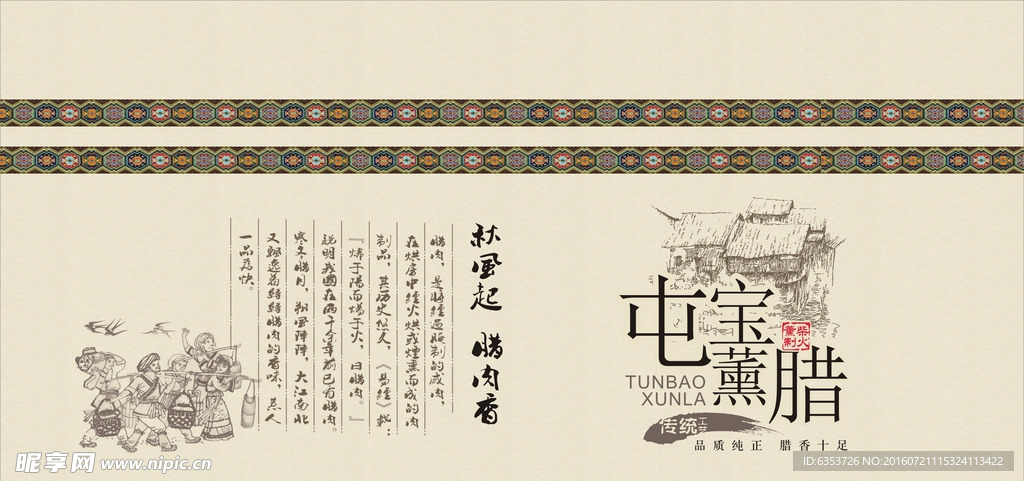 秋風起 腊肉香
腊肉，是將經過腌制的咸肉，
在烘房中經火烘或煙熏而成的肉
制品，其历史悠久，《易經》載：
『烯于陽而煬于火，曰腊肉。』
説明我國在兩千余年前已有腊肉。
寒冬腊月，朔風陣陣，大江南北
又飄逸着縷縷腊肉的香味，羔人
一品爲快。
屯宝薰腊
柴火
薰制
TUNBAO
XUNLA
传统工艺
品质纯正 腊香十足
昵享网 www.nipic.cn
ID:6353726 NO:20160721115324113422